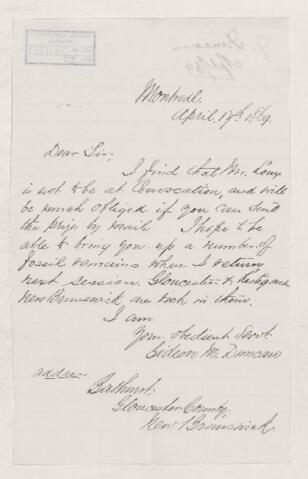 J. Duncan
Montreal.
April, 17th 1869.
Dear Sir;
I find that Mr. Lowe
is not to be at Convocation, and will
be much obliged if you can send
the prize by mail I hope to be
able to bring you up a number of
fossil remains when I return
next session. Gloucester & Restigouche
New Brunswick, are rich in them.
I am
Your obedient Servt.
Gideon M. Duncan
address
Bathurst.
Gloucester County.
New Brunswick